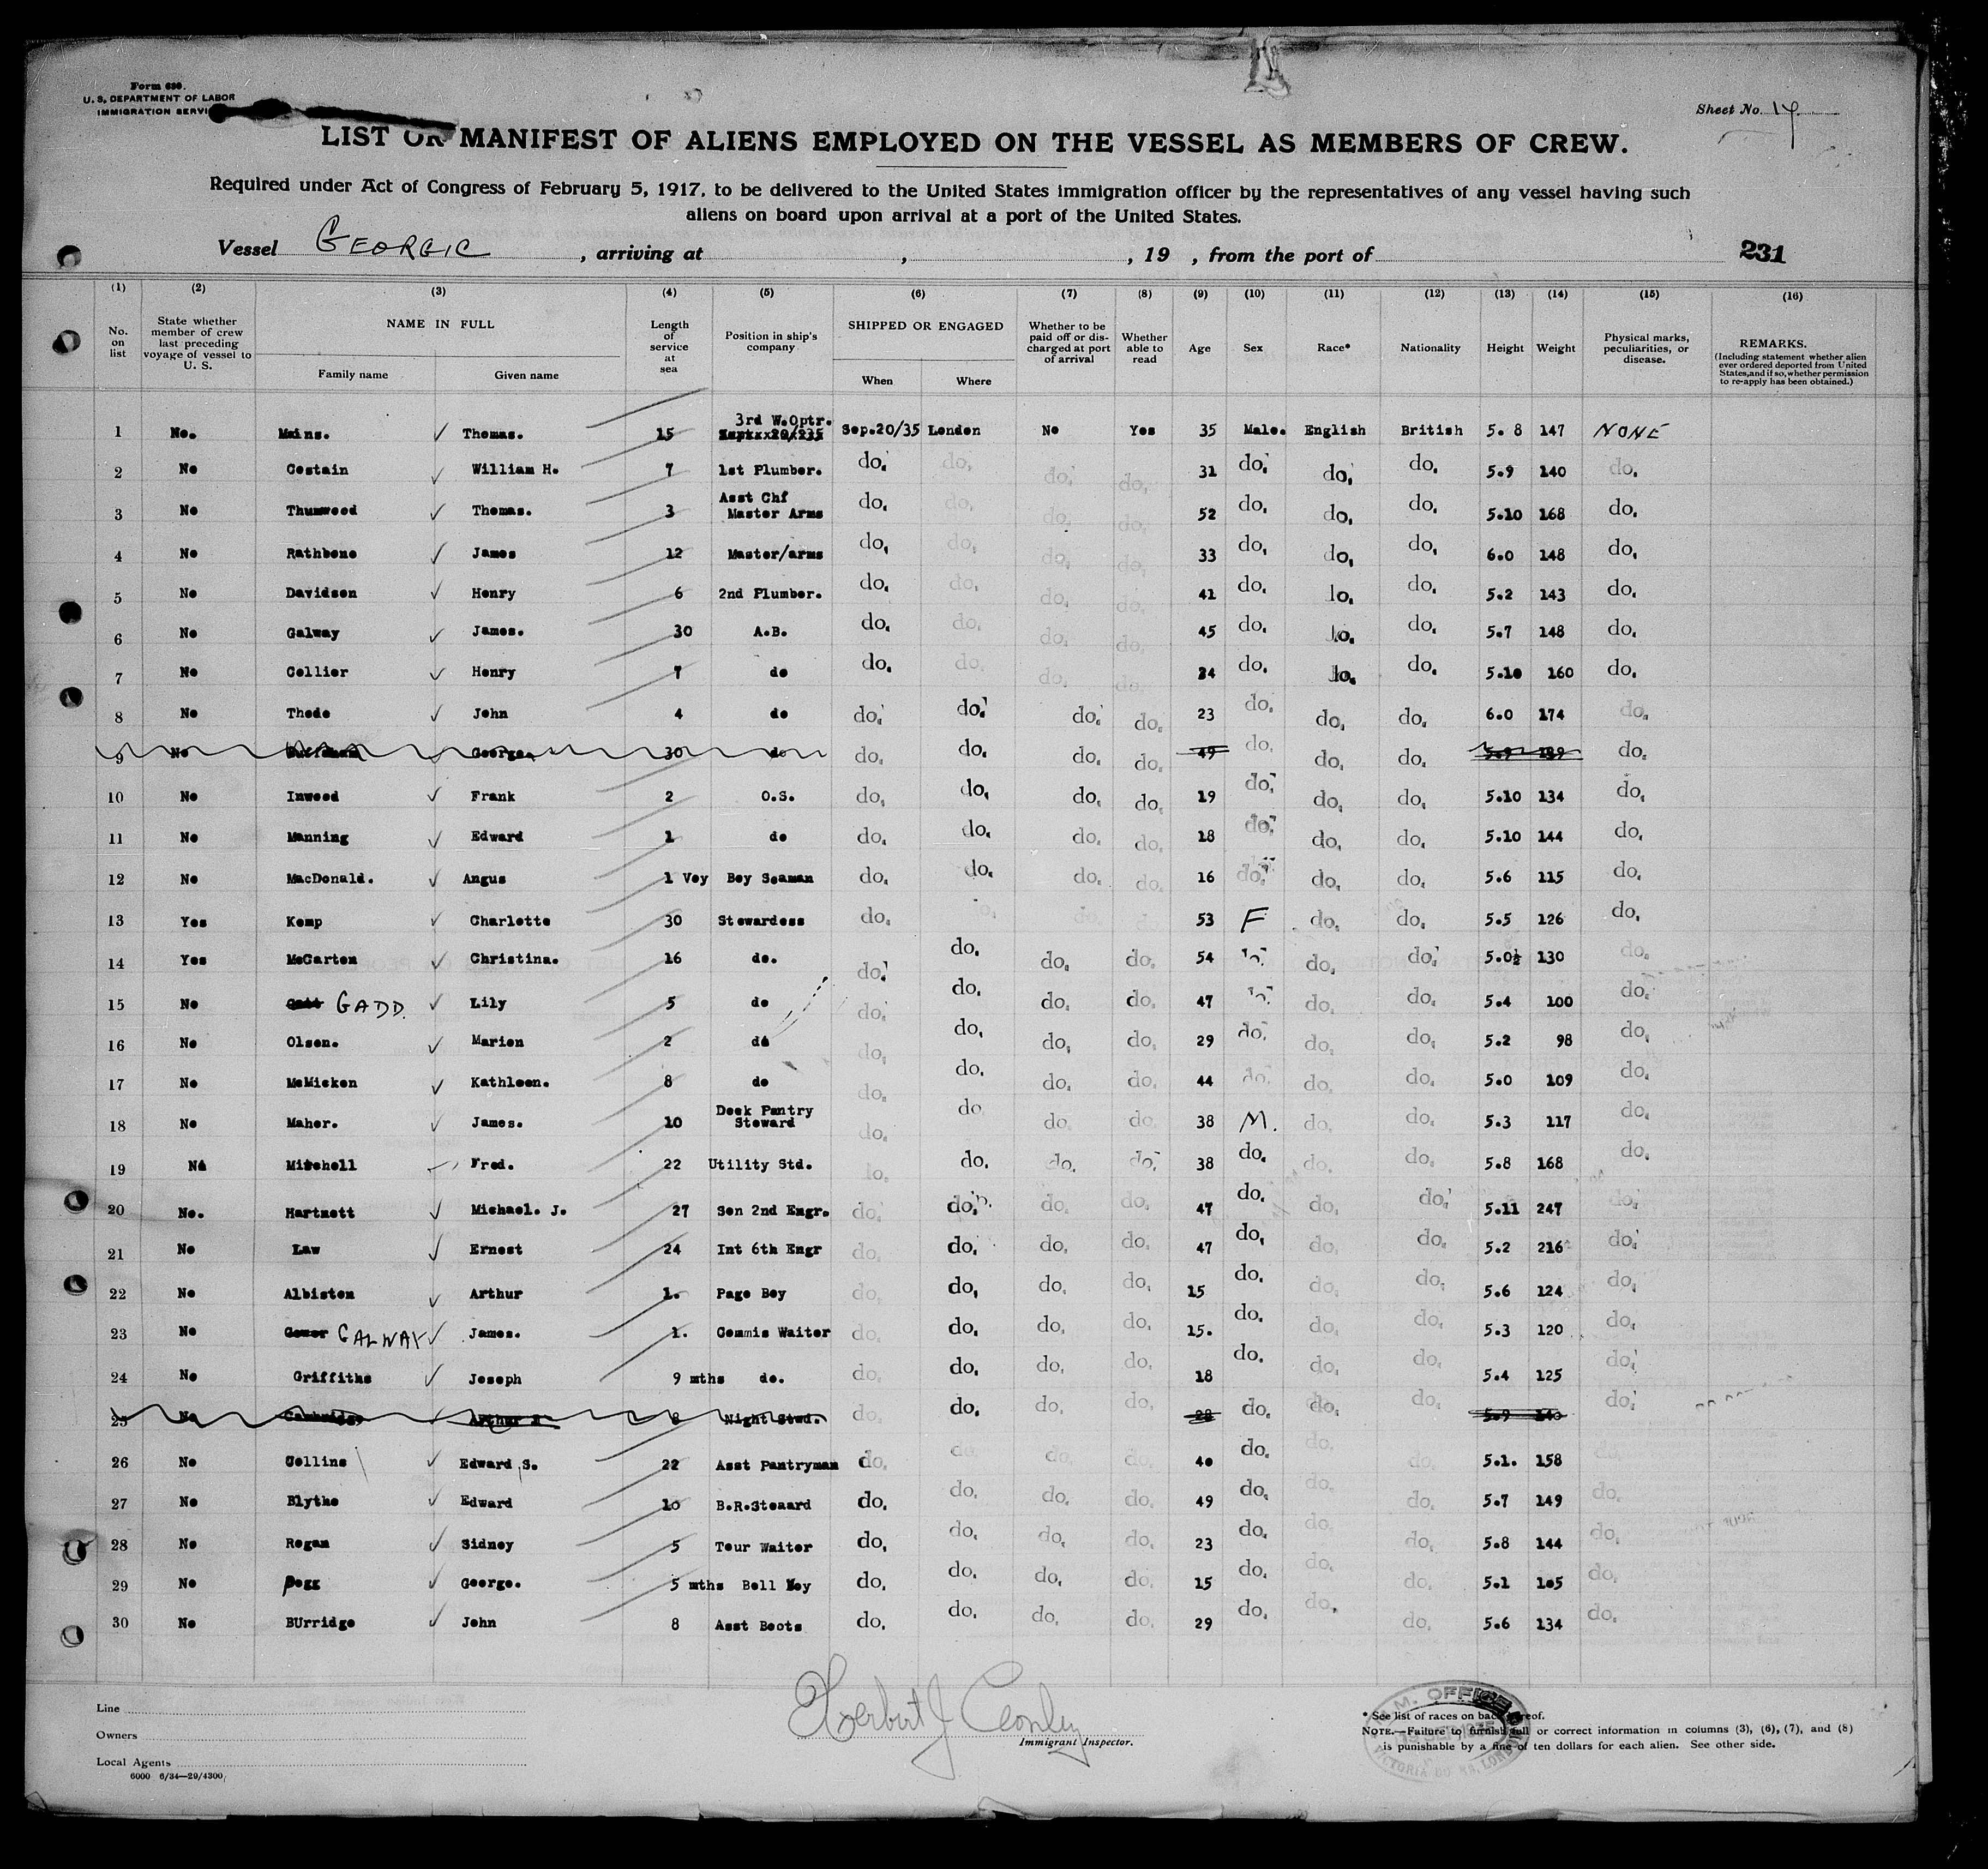 Form 680.
U. S. DEPARTMENT OF LABOR
IMMIGRATION SERVI
Sheet No. 14
LIST OR MANIFEST OF ALIENS EMPLOYED ON THE VESSEL AS MEMBERS OF CREW.
Required under Act of Congress of February 5, 1917, to be delivered to the United States immigration officer by the representatives of any vessel having such
aliens on board upon arrival at a port of the United States.
Vessel GEORGIC , arriving at , , 19 , from the port of 231
(1) (2) (3) (4) (5) (6) (7) (8) (9) (10) (11) (12) (13) (14) (15) (16)
No. on list State whether member of crew last preceding voyage of vessel to U. S. NAME IN FULL Family name Given name Length of service at sea Position in ship's company SHIPPED OR ENGAGED When Where Whether to be paid off or discharged at port of arrival Whether able to read Age Sex Race* Nationality Height Weight Physical marks, peculiarities, or disease. REMARKS. (Including statement whether alien ever ordered deported from United States, and if so, whether permission to re-apply has been obtained.)
1 No. Mains. ✓ Thomas. 15 3rd W.Optr. Sep.20/35 London No Yes 35 Male. English British 5. 8 147 NONE
2 No Costain ✓ William H. 7 1st Plumber. do. do. do. do. 31 do. do. do. 5.9 140 do.
3 No Thumwood ✓ Thomas. 3 Asst Chf Master Arms do. do. do. do. 52 do. do. do. 5.10 168 do.
4 No Rathbone ✓ James 12 Master/arms do. do. do. do. 33 do. do. do. 6.0 148 do.
5 No Davidson ✓ Henry 6 2nd Plumber. do. do. do. do. 41 do. do. do. 5.2 143 do.
6 No Galway ✓ James. 30 A.B. do. do. do. do. 45 do. do. do. 5.7 148 do.
7 No Collier ✓ Henry 7 do do. do. do. do. 24 do. do. do. 5.10 160 do.
8 No Thode ✓ John 4 do do. do. do. do. 23 do. do. do. 6.0 174 do.
9 No George. 30 do do. do. do. do. 49 do. do. do. 5.9 do.
10 No Inwood ✓ Frank 2 O.S. do. do. do. do. 19 do. do. do. 5.10 134 do.
11 No Manning ✓ Edward 1 do do. do. do. do. 18 do. do. do. 5.10 144 do.
12 No MacDonald. ✓ Angus 1 Voy Boy Seaman do. do. do. do. 16 do. do. do. 5.6 115 do.
13 Yes Kemp ✓ Charlotte 30 Stewardess do. 53 F do. do. 5.5 126 do.
14 Yes McCarten ✓ Christina. 16 do. do. do. do. do. 54 do. do. do. 5.0½ 130 do.
15 No GADD. ✓ Lily 5 do do. do. do. do. 47 do. do. do. 5.4 100 do.
16 No Olsen. ✓ Marion 2 do do. do. do. do. 29 do. do. do. 5.2 98 do.
17 No McMicken ✓ Kathleen. 8 do do. do. do. do. 44 do. do. do. 5.0 109 do.
18 No Maher. ✓ James. 10 Deck Pantry Steward do. do do. do. 38 M. do. do. 5.3 117 do.
19 No Mitchell ✓ Fred. 22 Utility Std. do. do. do. do. 38 do. do. do. 5.8 168 do.
20 No. Hartnett ✓ Michael. J. 27 Sen 2nd Engr. do. do. do. do. 47 do. do. do. 5.11 247 do.
21 No Law ✓ Ernest 24 Int 6th Engr do. do. do. do. 47 do. do. do. 5.2 216 do.
22 No Albiston ✓ Arthur 1. Page Boy do. do. do. do. 15 do. do. do. 5.6 124 do.
23 No Gower GALWAY ✓ James. 1. Commis Waiter do. do. do. do. 15. do. do. do. 5.3 120 do.
24 No Griffiths ✓ Joseph 9 mths do. do. do. do. do. 18 do. do. do. 5.4 125 do.
25 No Cambridge ✓ Arthur 8 Night Stwd. do. do. do. do. 28 do. do. do. 5.9 140 do.
26 No Collins ✓ Edward S. 22 Asst Pantryman do. do. do. do. 40 do. do. do. 5.1. 158 do.
27 No Blythe ✓ Edward 10 B.R.Steaard do. do. do. do. 49 do. do. do. 5.7 149 do.
28 No Regan ✓ Sidney 5 Tour Waiter do. do. do. do. 23 do. do. do. 5.8 144 do.
29 No Pegg ✓ George. 5 mths Bell Boy do. do. do. do. 15 do. do. do. 5.1 105 do.
30 No BUrridge ✓ John 8 Asst Boots do. do. do. do. 29 do. do. do. 5.6 134 do.
Line
Owners
Local Agents
6000 6/34—29/4300
Herbert J Conley
Immigrant Inspector.
* See list of races on back hereof.
NOTE.—Failure to furnish full or correct information in columns (3), (6), (7), and (8)
is punishable by a fine of ten dollars for each alien. See other side.
M. OFFICE